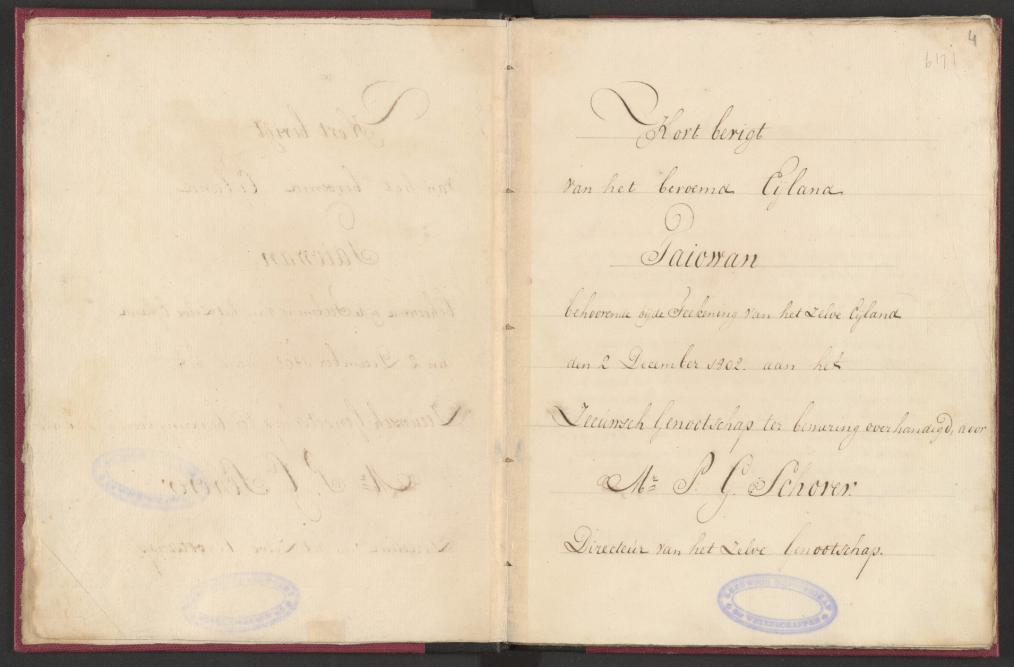 4
Kort berigt
van het beroemd Eijland
Taiowan
behoorende bij de Teekening van het zelve Eijland
den 2 December 1802. aan het
Zeeuwsch Genootschap ter bewaring overhandigd, door
Mr. P. G. Schorer.
Directeur van het zelve Genootschap.
ZEEUWSCH GENOOTSCHAP
DER WETENSCHAPPEN